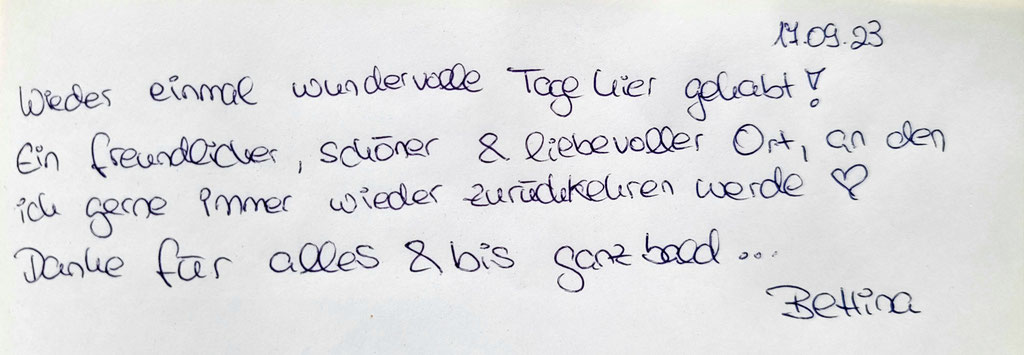 17.09.23
Wieder einmal wundervolle Tage hier gehabt!
Ein freundlicher, schöner & liebevoller Ort, an den
ich gerne immer wieder zurückkehren werde ♡
Danke für alles & bis ganz bald...
Bettina